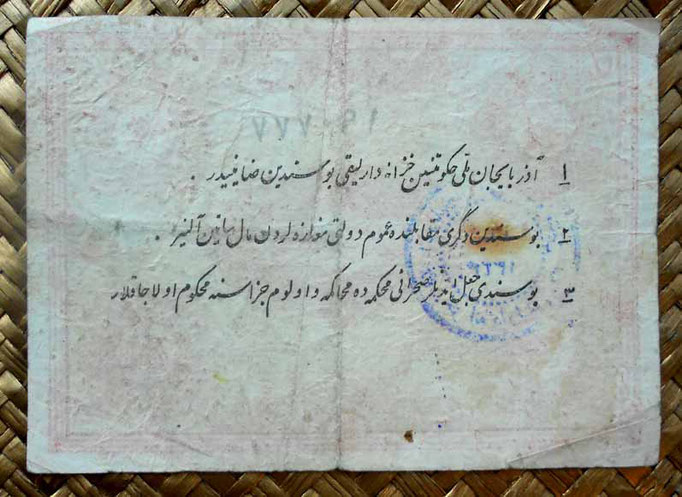 ۱ آذربایجان ملی حکومتینین خزانه دارلیقی بوسندین ضامنیدر .
۲ بوسندین دگری مقابلنده عموم دولتی مغازه لردن مال ساتین آلنیر .
۳ بوسندی جعل ایدنلر صحرائی محکمه ده محاکمه و اولوم جزاسنه محکوم اولاجاقلار